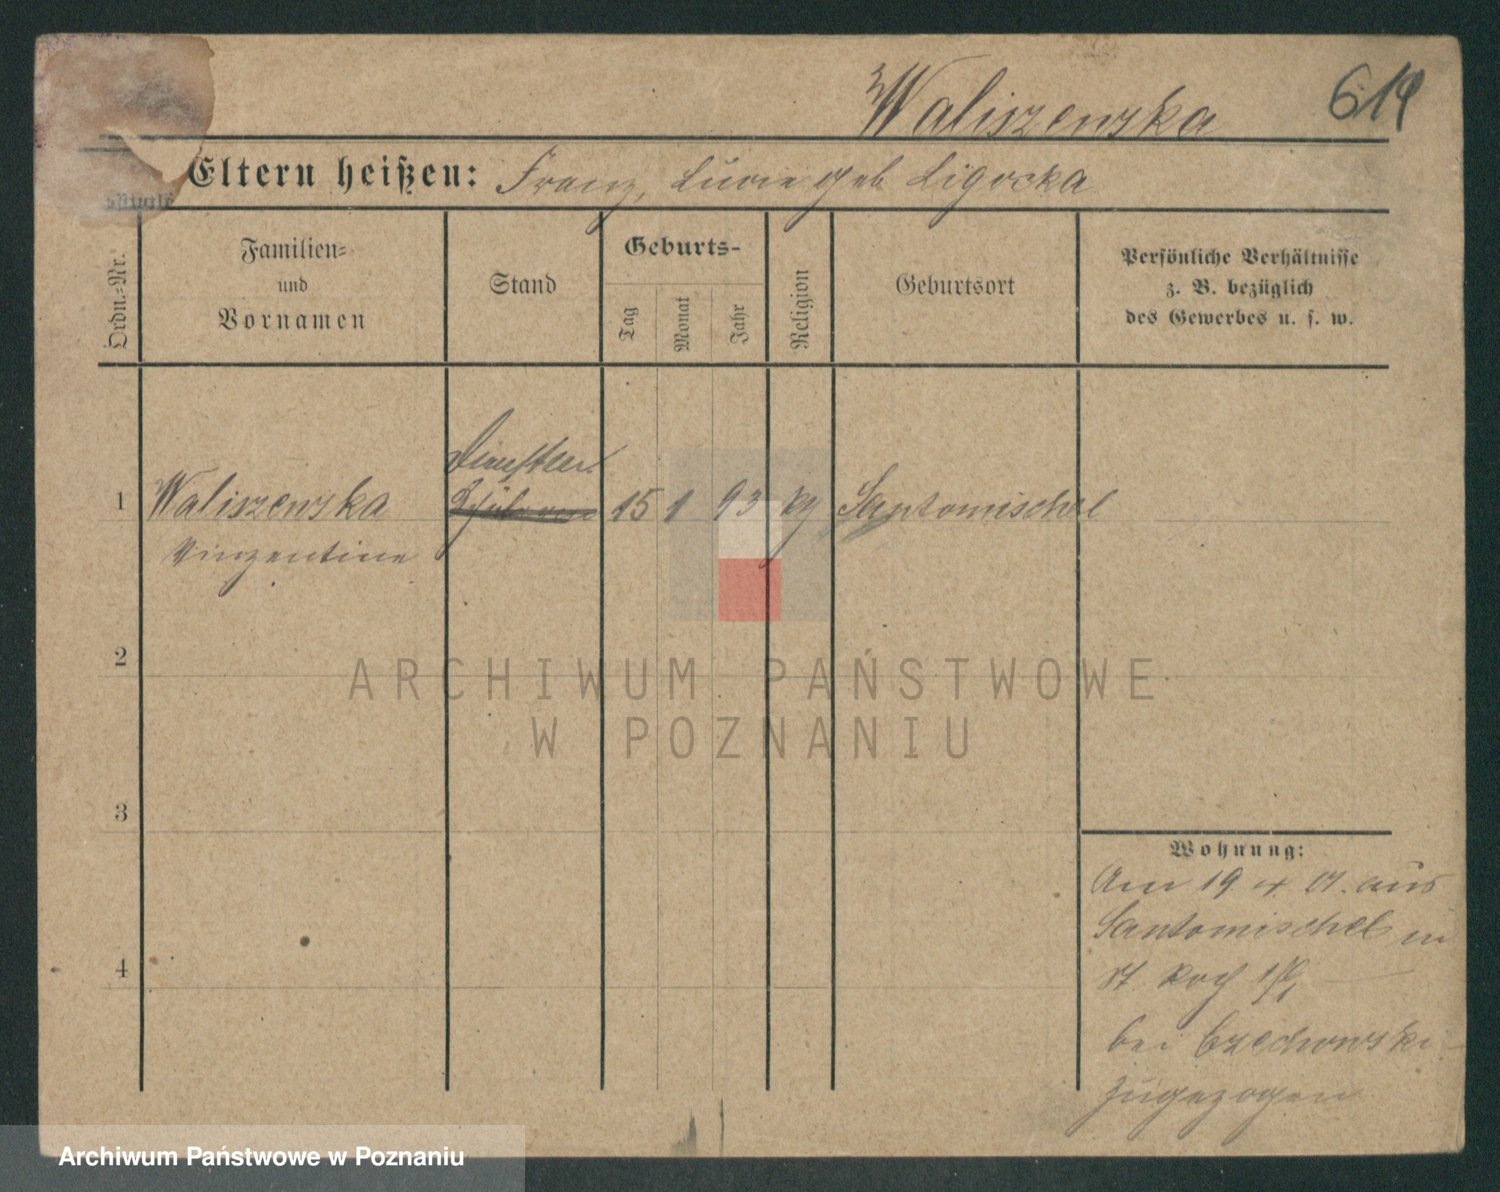 Waliszewska 619
Eltern heißen: Franz, Lucie geb Ligocka
Ordn.=Nr.
Familien=
und
Vornamen
Stand
Geburts-
Tag
Monat
Jahr
Religion
Geburtsort
Persönliche Verhältnisse
z. B. bezüglich
des Gewerbes u. s. w.
1 Waliszewska 15 1 93 kg Santomischel
Vinzentine
2
3
4
Wohnung:
Am 19 4 aus
Santomischel in
St. Roch
bei Czechowski
zugezogen
ARCHIWUM PAŃSTWOWE
W POZNANIU
Archiwum Państwowe w Poznaniu